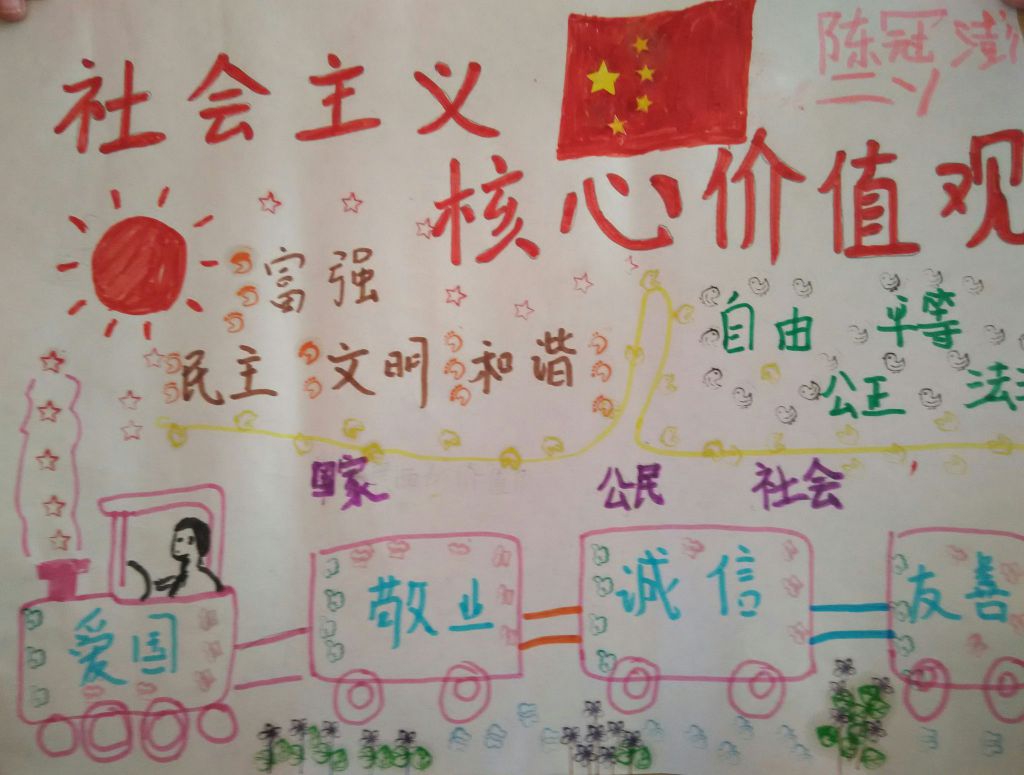 社会主义
陈冠澎
二
核心价值观
富强
民主 文明 和谐
自由 平等
公正 法
国家 公民 社会
爱国 敬业 诚信 友善